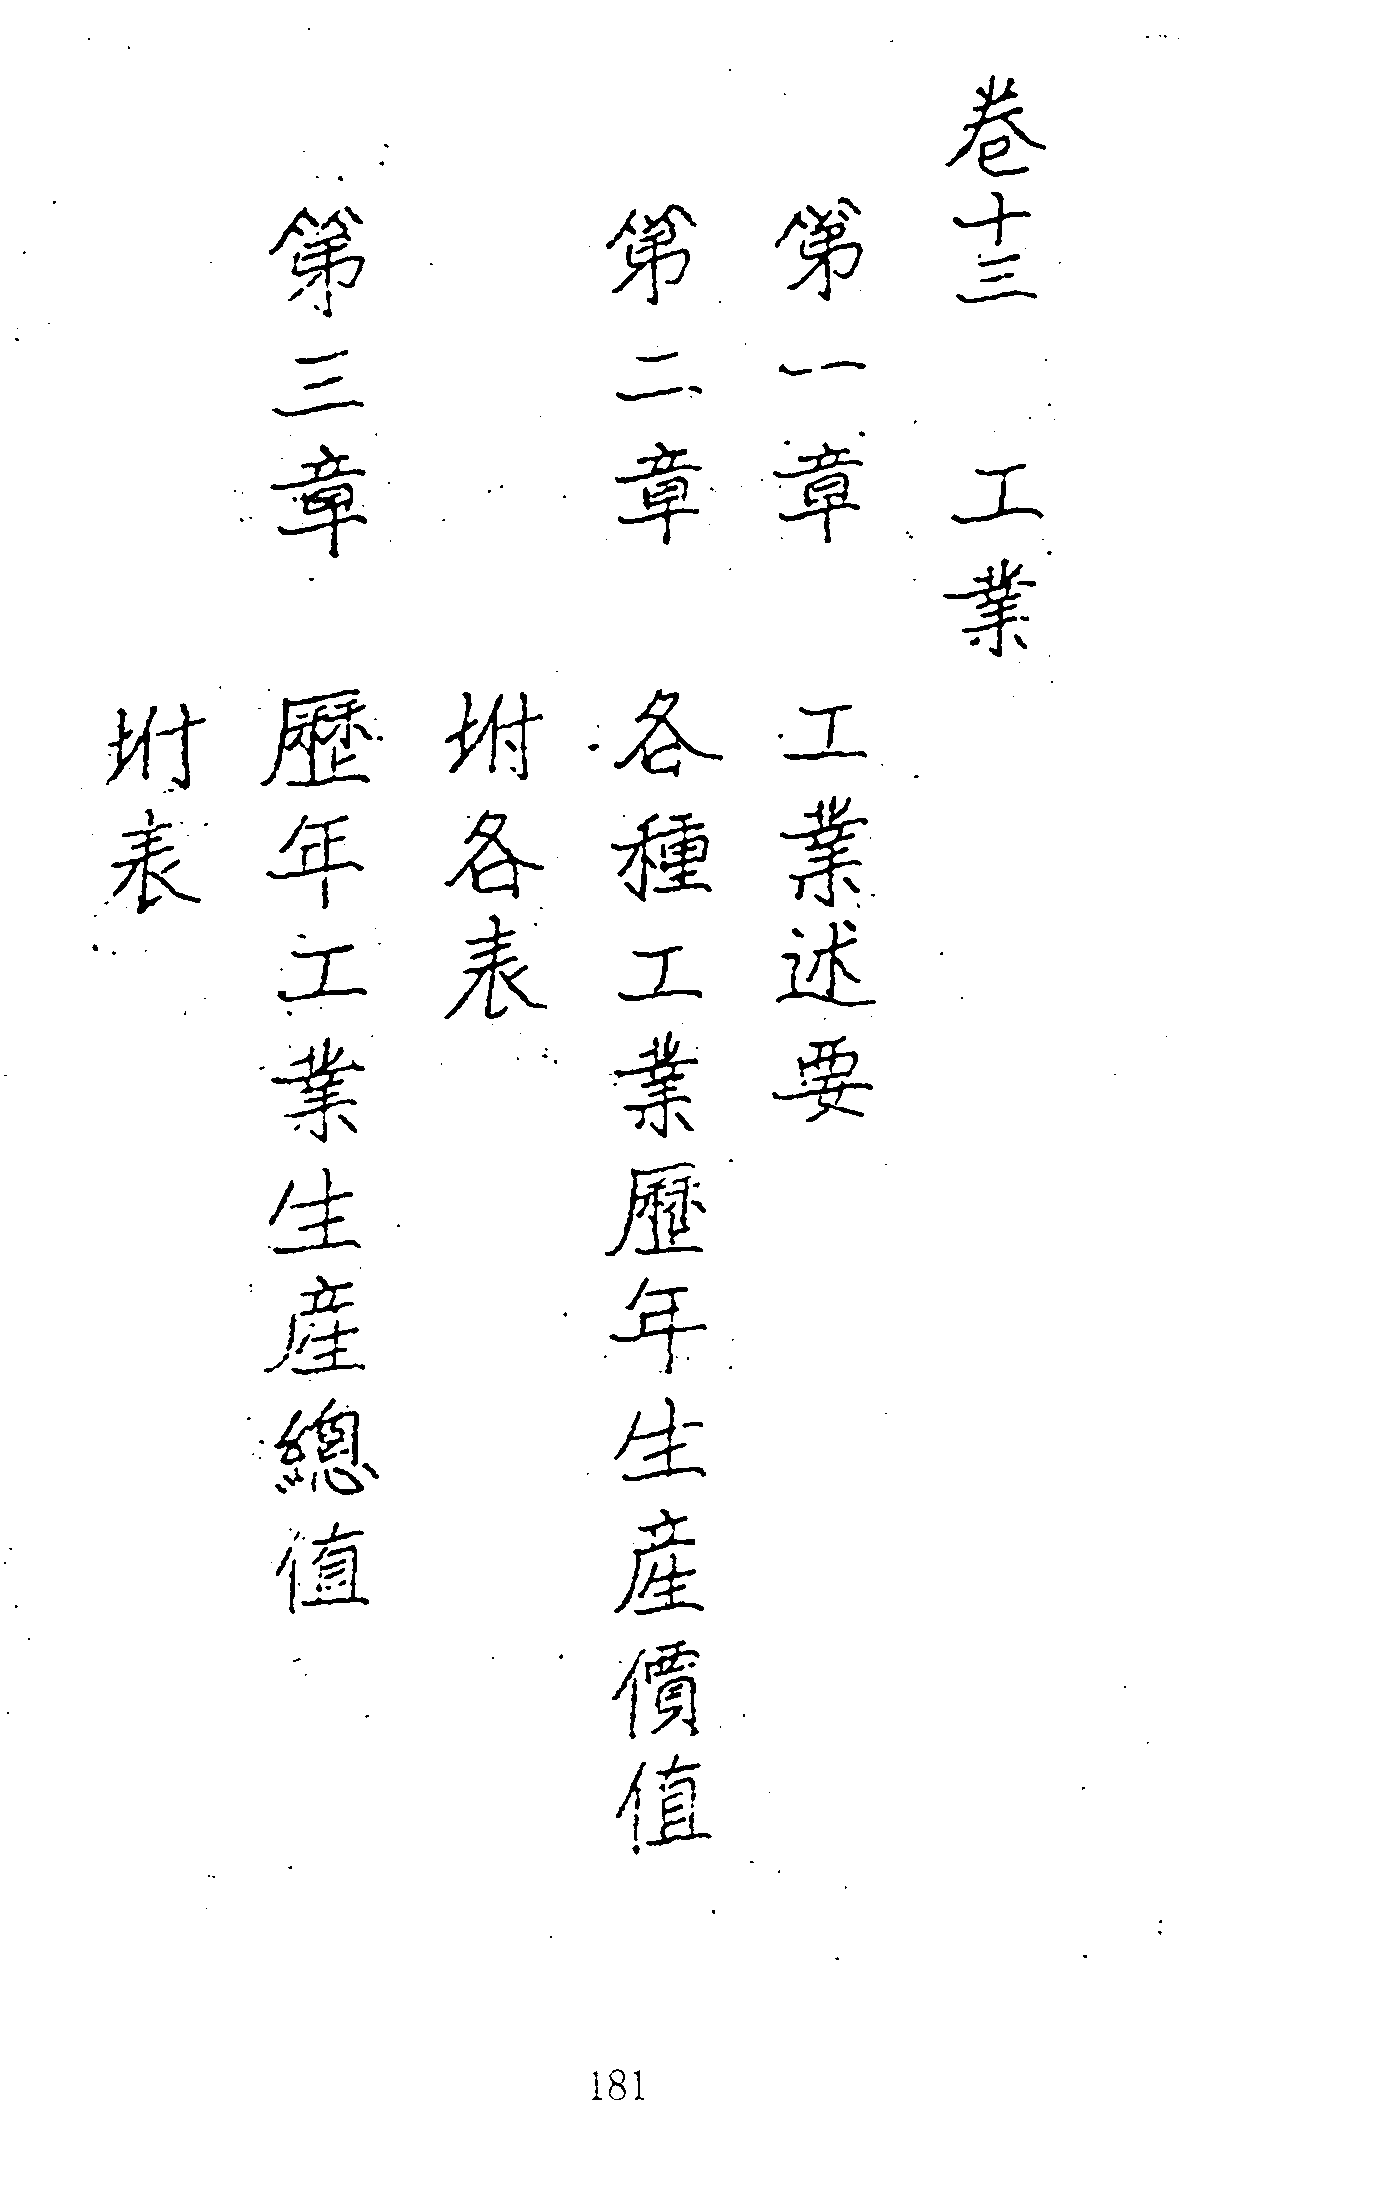 卷十三　工業
第一章　工業述要
第二章　各種工業歷年生產價值
坿各表
第三章　歷年工業生產總值
坿表
181